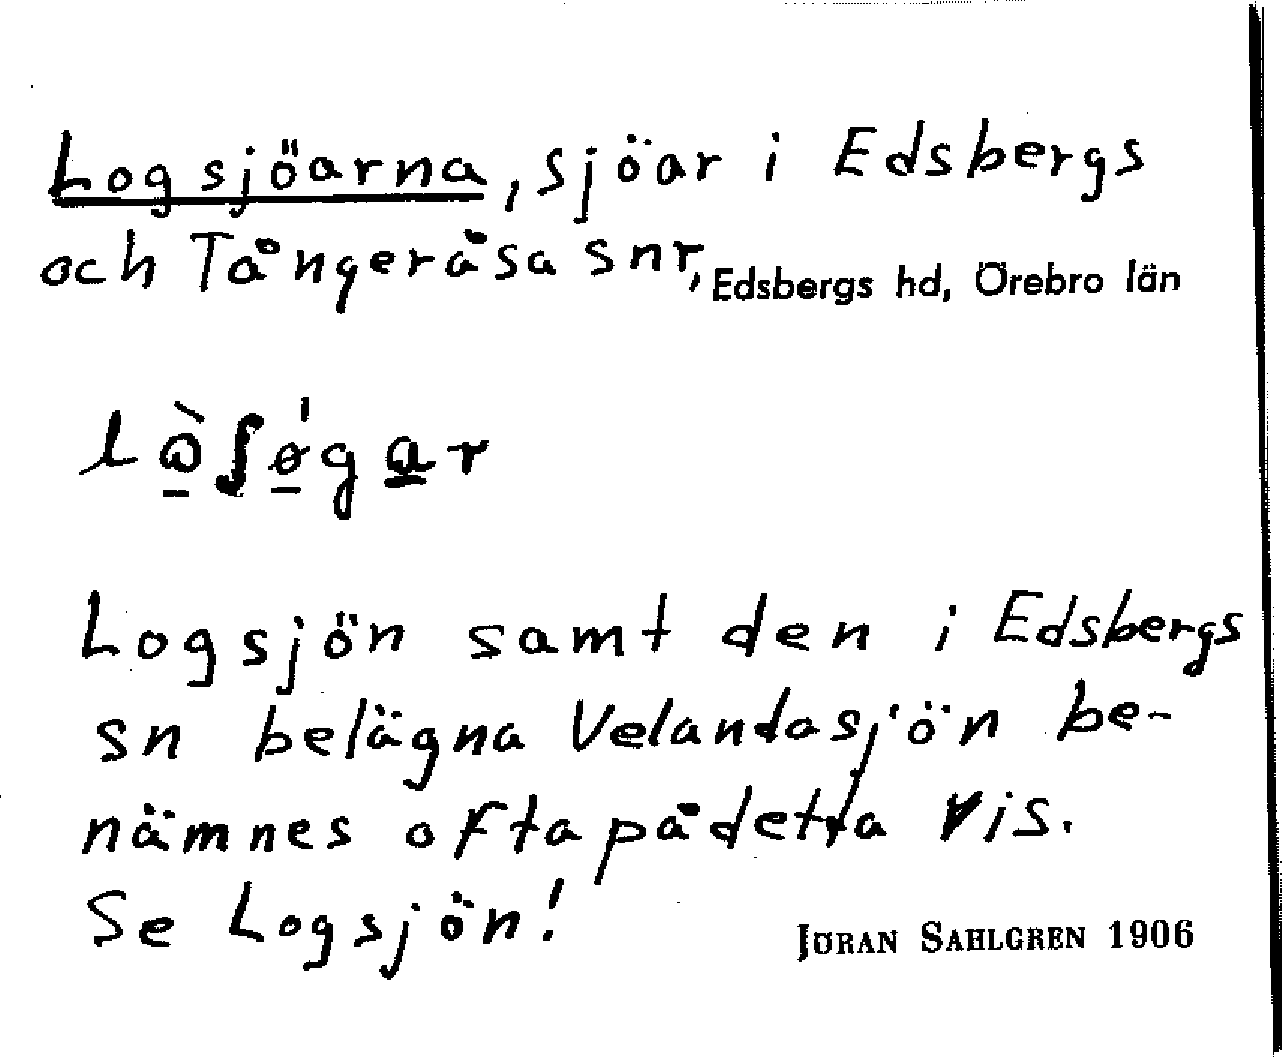 Logsjöarna, sjöar i Edsbergs
och Tångeråsa snr, Edsbergs hd, Örebro län
Logsjön samt den i Edsbergs
sn belägna Velandasjön be-
nämnes ofta på detta vis.
Se Logsjön!
JÖRAN SAHLGREN 1906